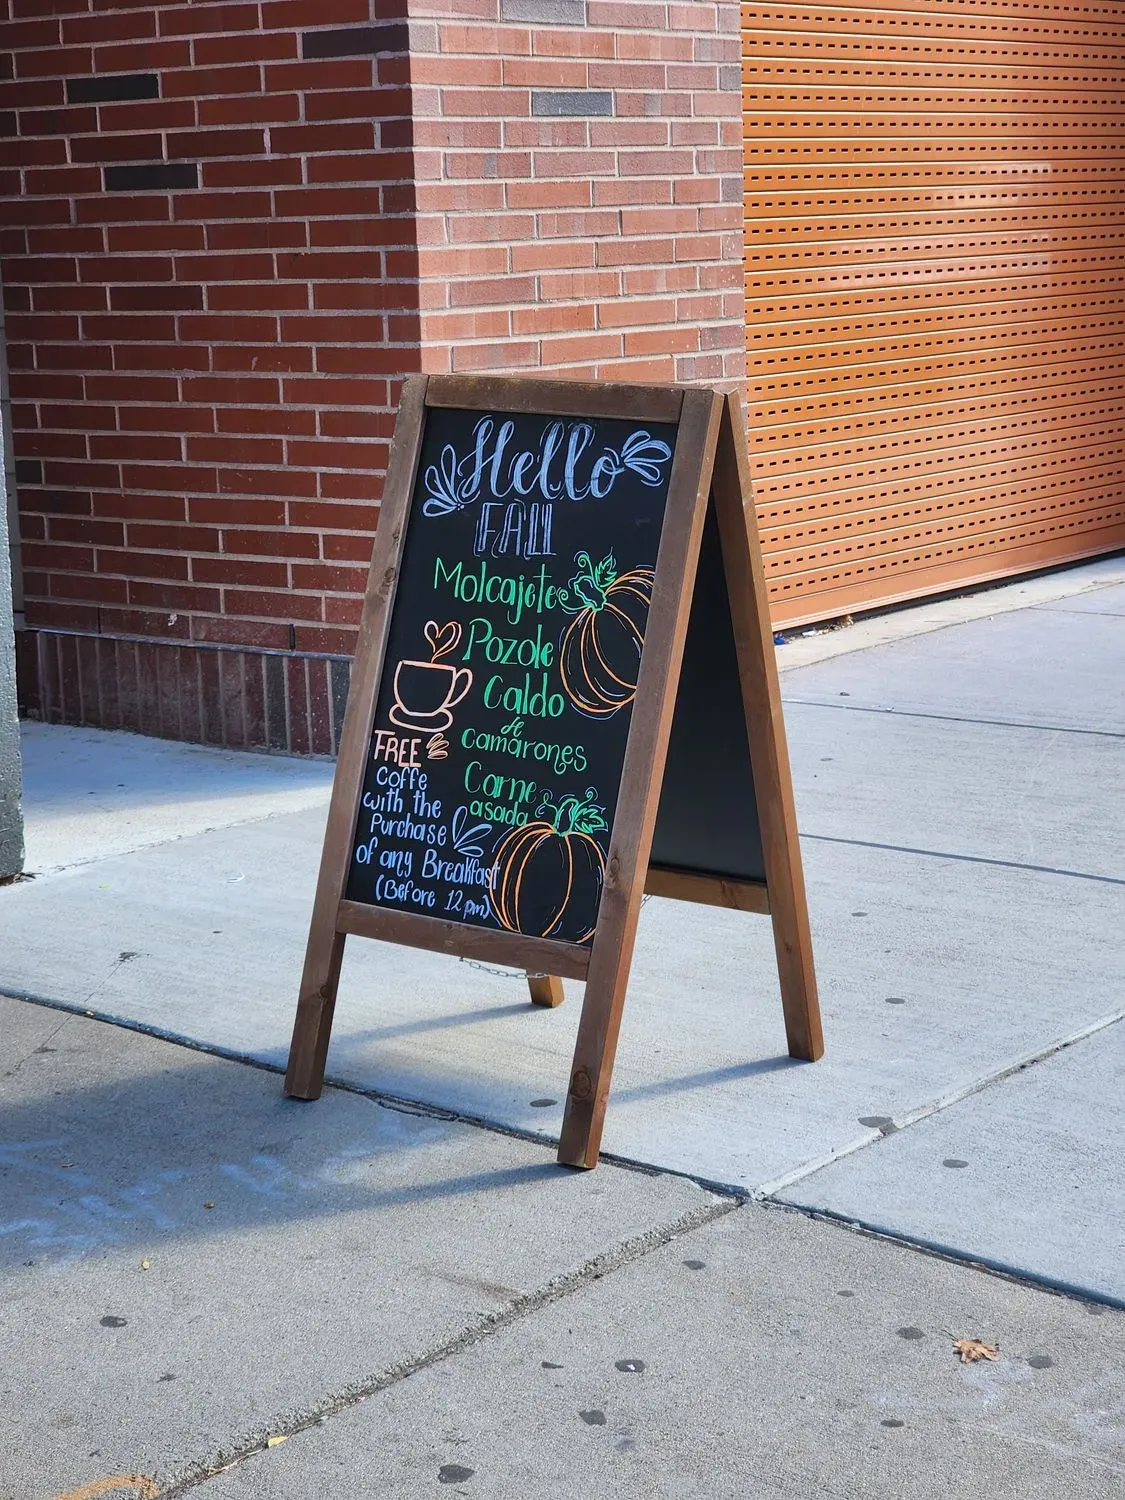 Hello
FALL
Molcajete
Pozole
Caldo
de
camarones
Carne
asada
FREE
Coffe
with the
Purchase
of any Breakfast
(Before 12 pm)